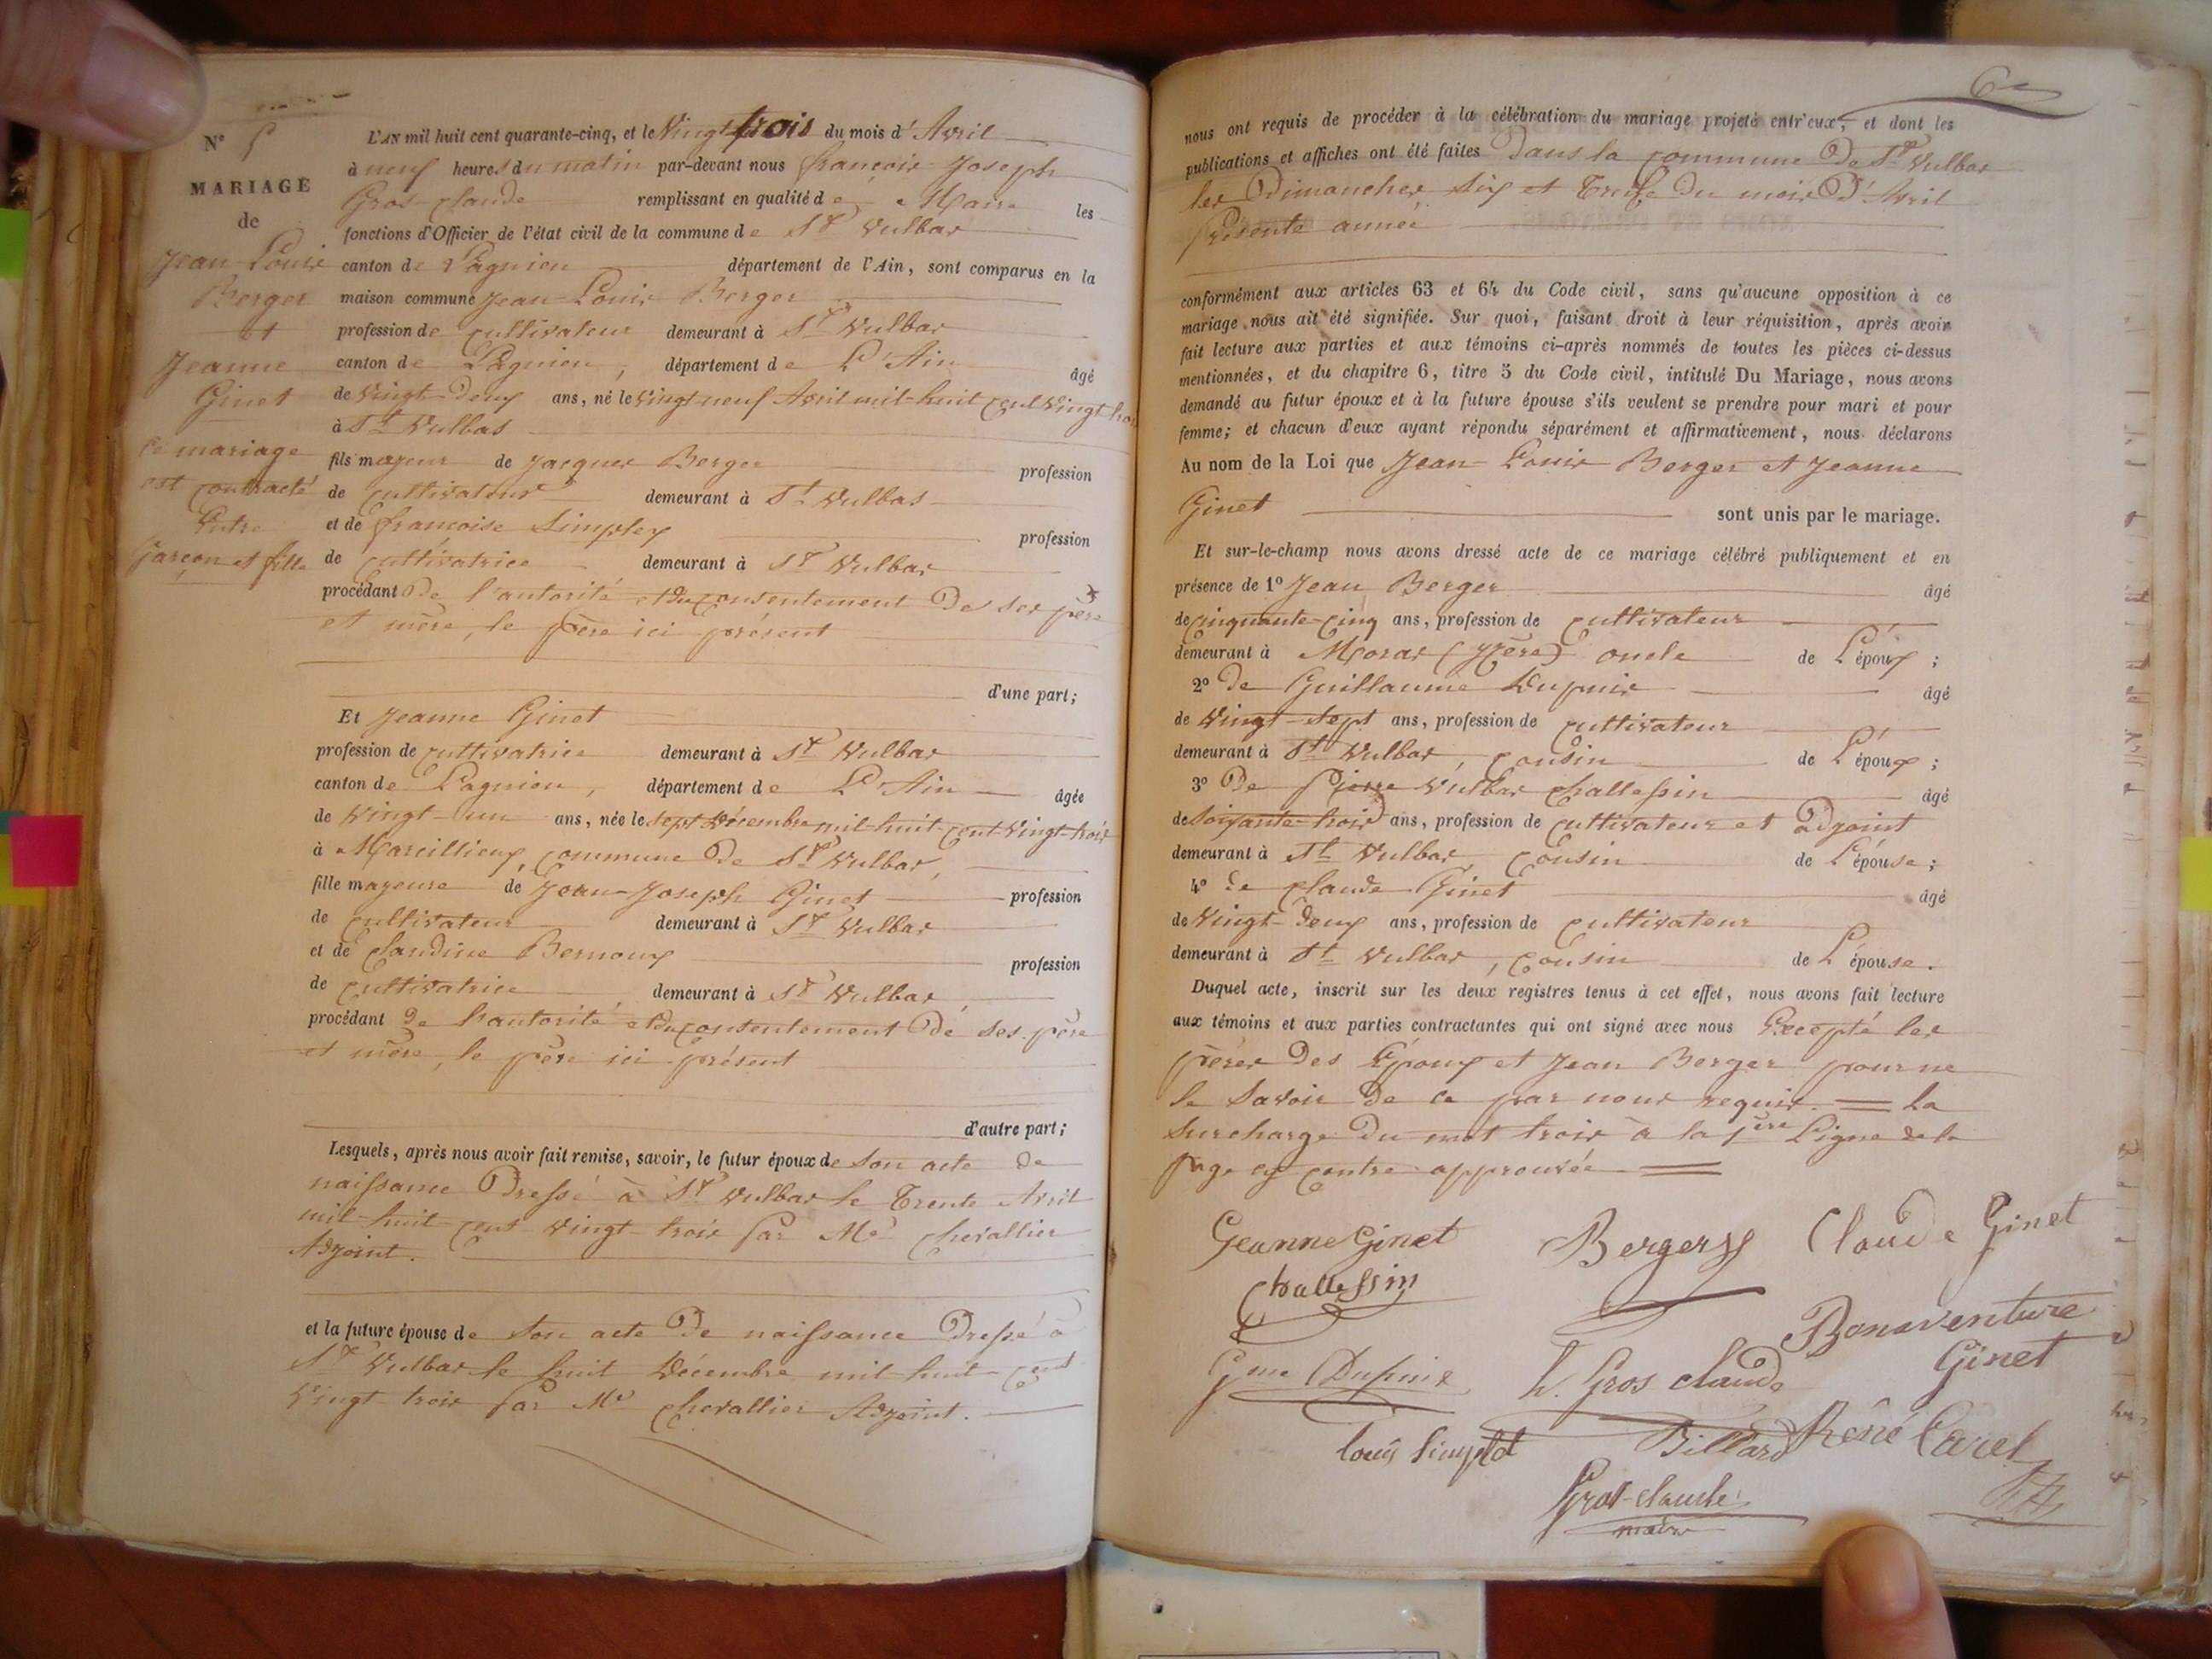 N° 5
MARIAGE
de
Jean Louis
Berger
et
Jeanne
Ginet
Ce mariage
est contracté
Entre
Garçon et fille
L'AN mil huit cent quarante-cinq, et le Vingt trois du mois d'Avril
à neuf heures du matin par-devant nous françois Joseph
Gros-Claude remplissant en qualité de Maire les
fonctions d'Officier de l'état civil de la commune de St Vulbas
canton de Lagnieu département de l'Ain, sont comparus en la
maison commune Jean-Louis Berger
profession de cultivateur demeurant à St Vulbas
canton de Lagnieu, département de L'Ain âgé
de Vingt-Deux ans, né le Vingt-neuf Avril mil-huit cent Vingt-trois
à St Vulbas
fils majeur de Jacques Berger profession
de cultivateur demeurant à St Vulbas
et de françoise Simplex profession
de cultivatrice demeurant à St Vulbas
procédant De l'autorité et du consentement De ses père
et mère, le père ici présent
d'une part;
Et Jeanne Ginet
profession de cultivatrice demeurant à St Vulbas
canton de Lagnieu, département de L'Ain âgée
de Vingt-un ans, née le sept Décembre mil-huit-cent Vingt-trois
à Marcillieux, commune De St Vulbas,
fille majeure de Jean-Joseph Ginet profession
de cultivateur demeurant à St Vulbas
et de Claudine Bernoux profession
de cultivatrice, demeurant à St Vulbas,
procédant de l'autorité et du consentement De ses père
et mère, le père ici présent
d'autre part;
Lesquels, après nous avoir fait remise, savoir, le futur époux de son acte de
naissance Dressé à St Vulbas le Trente Avril
mil-huit-cent Vingt-trois par Mr Chevallier
Adjoint.
et la future épouse de son acte De naissance Dressé à
St Vulbas le huit Décembre mil-huit-cent
Vingt trois par Mr Chevallier Adjoint.
nous ont requis de procéder à la célébration du mariage projeté entr'eux, et dont les
publications et affiches ont été faites Dans la commune De St Vulbas
les Dimanches Six et Treize Du mois D'Avril
Présente année
conformément aux articles 63 et 64 du Code civil, sans qu'aucune opposition à ce
mariage nous ait été signifiée. Sur quoi, faisant droit à leur réquisition, après avoir
fait lecture aux parties et aux témoins ci-après nommés de toutes les pièces ci-dessus
mentionnées, et du chapitre 6, titre 5 du Code civil, intitulé Du Mariage, nous avons
demandé au futur époux et à la future épouse s'ils veulent se prendre pour mari et pour
femme; et chacun d'eux ayant répondu séparément et affirmativement, nous déclarons
Au nom de la Loi que Jean Louis Berger et Jeanne
Ginet sont unis par le mariage.
Et sur-le-champ nous avons dressé acte de ce mariage célébré publiquement et en
présence de 1° Jean Berger âgé
de cinquante-cinq ans, profession de cultivateur
demeurant à Moras (Isère) oncle de L'époux;
2° de Guillaume Dupuis âgé
de Vingt-sept ans, profession de cultivateur
demeurant à St Vulbas, cousin de L'époux;
3° De Pierre Vulbas Challessin âgé
de Soixante-trois ans, profession de cultivateur et adjoint
demeurant à St Vulbas, cousin de L'épouse;
4° de Claude Ginet âgé
de Vingt-Deux ans, profession de cultivateur
demeurant à St Vulbas, cousin de L'épouse.
Duquel acte, inscrit sur les deux registres tenus à cet effet, nous avons fait lecture
aux témoins et aux parties contractantes qui ont signé avec nous Excepté les
pères Des Epoux et Jean Berger pour ne
le Savoir De ce par nous requis. = La
surcharge Du mot trois à la 1ère Ligne de la
page ci contre approuvée =
Jeanne Ginet Berger Claude Ginet
Challessin
Bonaventure
Ginet
Gme Dupuis h. Gros claude
Louis Billard Réné Carel
Gros-claude
maire